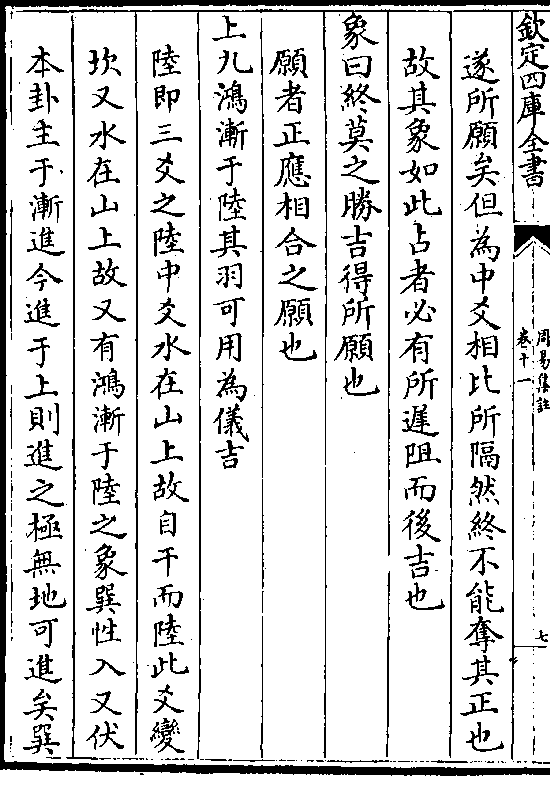 欽定四庫全書
周易集註
卷十一
七
遂所願矣但為中爻相比所隔然終不能奪其正也
故其象如此占者必有所遲阻而後吉也
象曰終莫之勝吉得所願也
願者正應相合之願也
上九鴻漸于陸其羽可用為儀吉
陸即三爻之陸中爻水在山上故自干而陸此爻變
坎又水在山上故又有鴻漸于陸之象巽性入又伏
本卦主于漸進今進于上則進之極無地可進矣巽